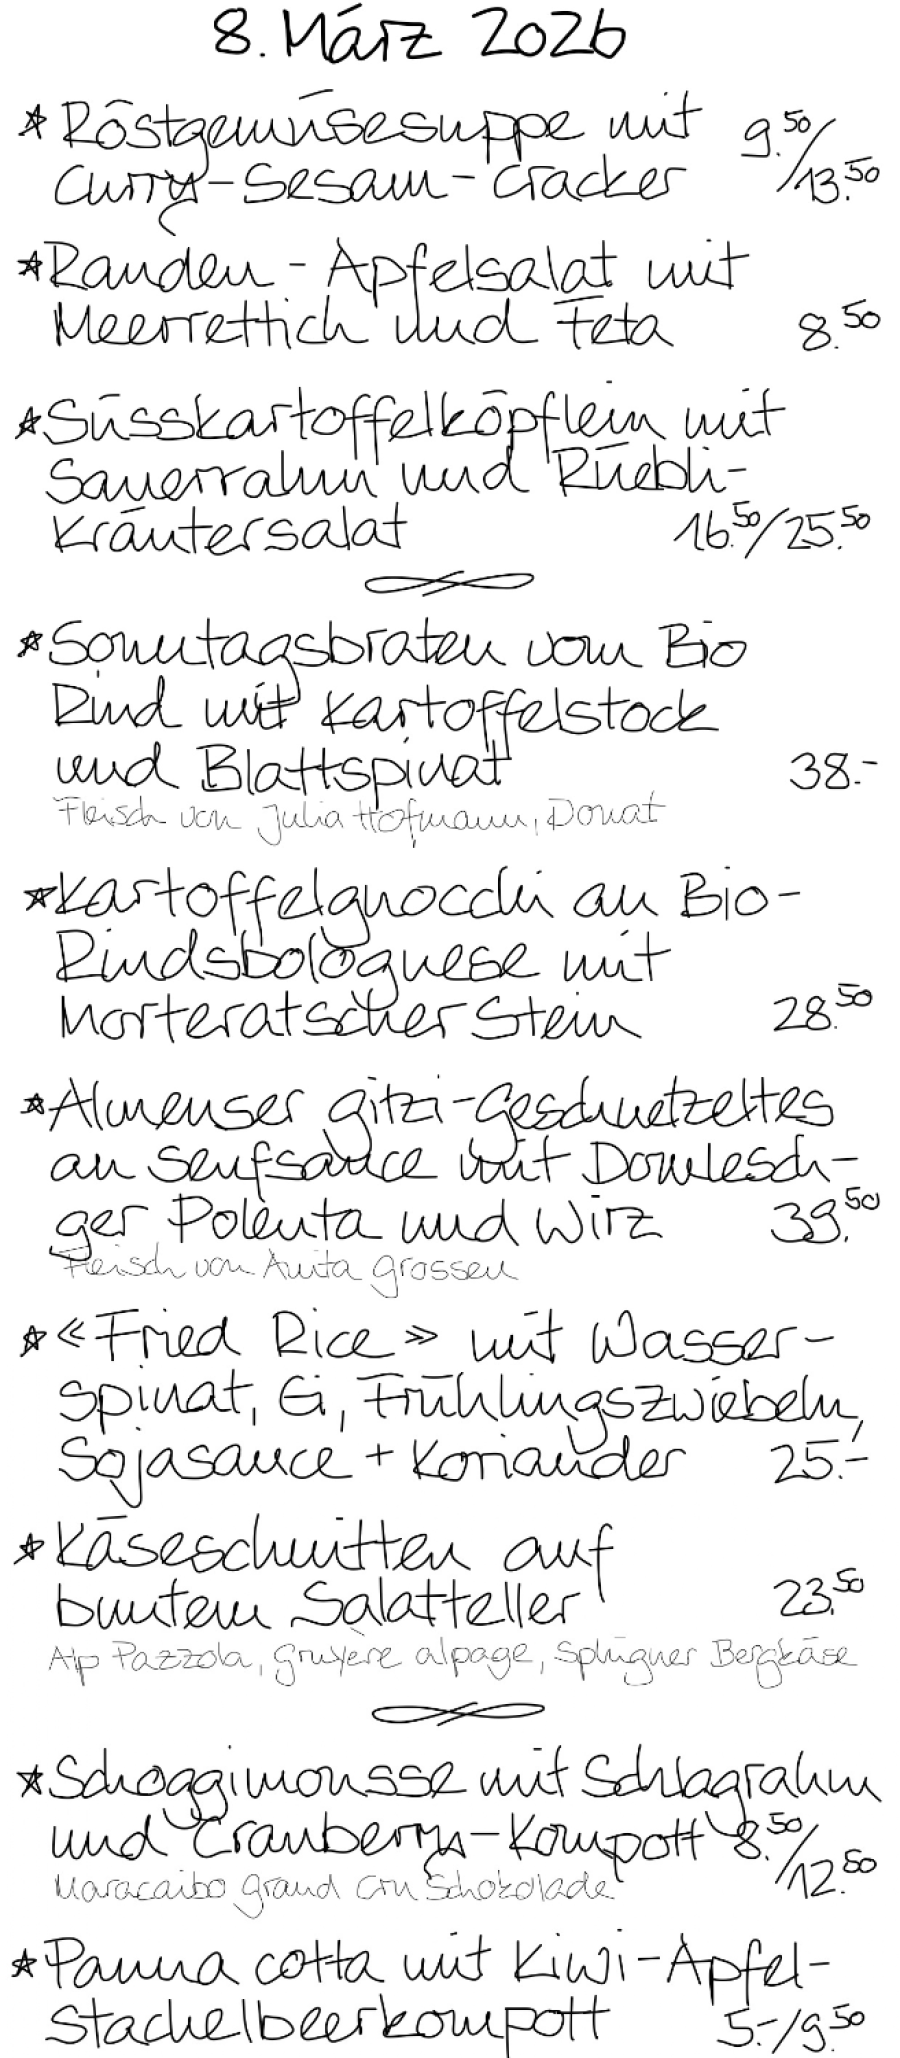 8. März 2026
* Röstgemüsesuppe mit 9.50/
Curry-Sesam-Cracker 13.50
* Randen-Apfelsalat mit
Meerrettich und Feta 8.50
* Süsskartoffelköpflein mit
Sauerrahm und Rüebli-
Kräutersalat 16.50/25.50
* Sonntagsbraten vom Bio
Rind mit Kartoffelstock
und Blattspinat 38.-
Fleisch von Julia Hofmann, Donat
* Kartoffelgnocchi an Bio-
Rindsbolognese mit
Morteratscher Stein 28.50
* Almenser Gitzi-Geschnetzeltes
an Senfsauce mit Domlesch-
ger Polenta und Wirz 39.50
Fleisch von Anita Grossen
* «Fried Rice» mit Wasser-
Spinat, Ei, Frühlingszwiebeln,
Sojasauce + Koriander 25.-
* Käseschnitten auf
buntem Salatteller 23.50
Alp Pazzola, Gruyère alpage, Splügner Bergkäse
* Schoggimousse mit Schlagrahm
und Cranberrys-Kompott 8.50/
Maracaibo Grand Cru Schokolade 12.50
* Panna cotta mit Kiwi-Apfel-
Stachelbeerkompott 5.-/9.50